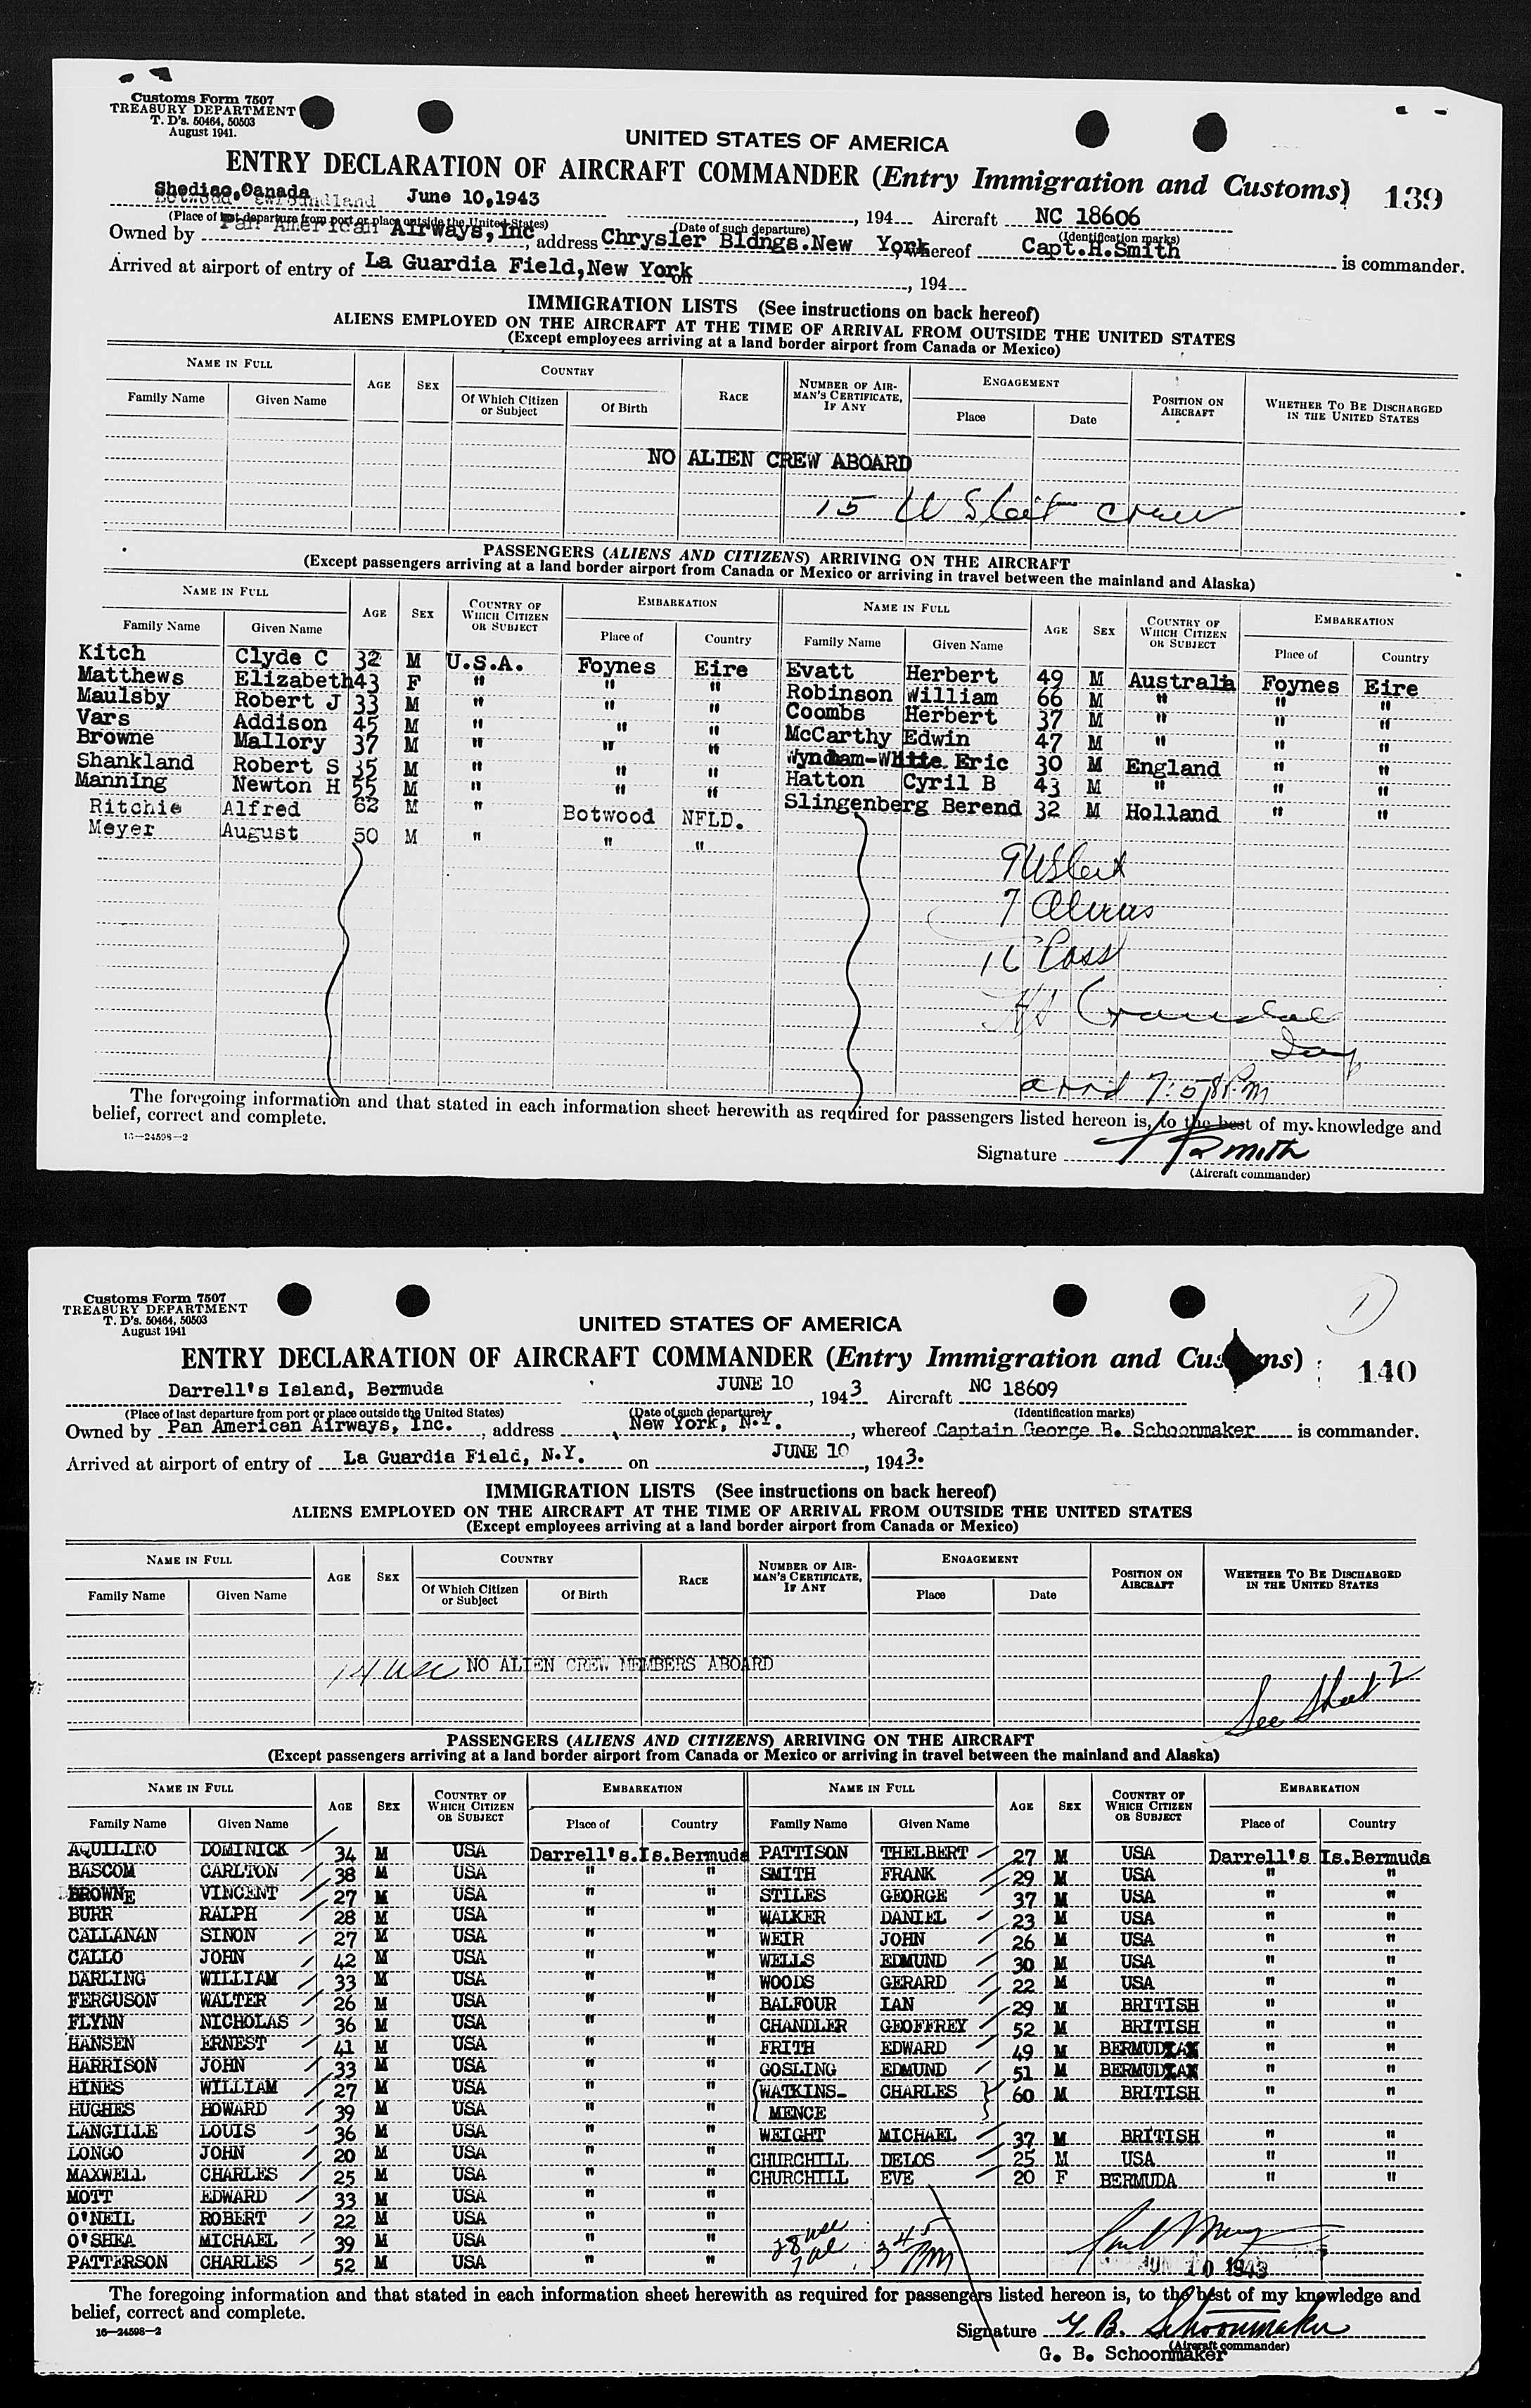 Customs Form 7507
TREASURY DEPARTMENT
T. D's. 50464, 50503
August 1941.
UNITED STATES OF AMERICA
ENTRY DECLARATION OF AIRCRAFT COMMANDER (Entry Immigration and Customs) 139
Shediac.Canada June 10,1943 , 194 Aircraft NC 18606
(Place of last departure from port or place outside the United States) (Date of such departure) (Identification marks)
Owned by Pan American Airways, Inc , address Chrysler Bldngs.New York , whereof Capt.H.Smith is commander.
Arrived at airport of entry of La Guardia Field,New York on , 194
IMMIGRATION LISTS (See instructions on back hereof)
ALIENS EMPLOYED ON THE AIRCRAFT AT THE TIME OF ARRIVAL FROM OUTSIDE THE UNITED STATES
(Except employees arriving at a land border airport from Canada or Mexico)
NAME IN FULL AGE SEX COUNTRY RACE NUMBER OF AIRMAN'S CERTIFICATE, IF ANY ENGAGEMENT POSITION ON AIRCRAFT WHETHER TO BE DISCHARGED IN THE UNITED STATES
Family Name Given Name Of Which Citizen or Subject Of Birth Place Date
NO ALIEN CREW ABOARD
15 U S Cit crew
PASSENGERS (ALIENS AND CITIZENS) ARRIVING ON THE AIRCRAFT
(Except passengers arriving at a land border airport from Canada or Mexico or arriving in travel between the mainland and Alaska)
NAME IN FULL AGE SEX COUNTRY OF WHICH CITIZEN OR SUBJECT EMBARKATION NAME IN FULL AGE SEX COUNTRY OF WHICH CITIZEN OR SUBJECT EMBARKATION
Family Name Given Name Place of Country Family Name Given Name Place of Country
Kitch Clyde C 32 M U.S.A. Foynes Eire Evatt Herbert 49 M Australia Foynes Eire
Matthews Elizabeth 43 F " " " Robinson William 66 M " " "
Maulsby Robert J 33 M " " " Coombs Herbert 37 M " " "
Vars Addison 45 M " " " McCarthy Edwin 47 M " " "
Browne Mallory 37 M " " " Wyndham-White Eric 30 M England " "
Shankland Robert S 35 M " " " Hatton Cyril B 43 M " " "
Manning Newton H 55 M " " " Slingenberg Berend 32 M Holland " "
Ritchie Alfred 62 M " Botwood NFLD.
Meyer August 50 M " " "
9 US Cit
7 Aliens
16 Pass
arrd 7:58 Pm
The foregoing information and that stated in each information sheet herewith as required for passengers listed hereon is, to the best of my knowledge and
belief, correct and complete.
16—24598—2
Signature H Smith
(Aircraft commander)
Customs Form 7507
TREASURY DEPARTMENT
T. D's. 50464, 50503
August 1941
1
UNITED STATES OF AMERICA
ENTRY DECLARATION OF AIRCRAFT COMMANDER (Entry Immigration and Customs) 140
Darrell's Island, Bermuda JUNE 10 , 1943 Aircraft NC 18609
(Place of last departure from port or place outside the United States) (Date of such departure) (Identification marks)
Owned by Pan American Airways, Inc. , address New York, N.Y. , whereof Captain George B. Schoonmaker is commander.
Arrived at airport of entry of La Guardia Field, N.Y. on JUNE 10 , 1943.
IMMIGRATION LISTS (See instructions on back hereof)
ALIENS EMPLOYED ON THE AIRCRAFT AT THE TIME OF ARRIVAL FROM OUTSIDE THE UNITED STATES
(Except employees arriving at a land border airport from Canada or Mexico)
NAME IN FULL AGE SEX COUNTRY RACE NUMBER OF AIRMAN'S CERTIFICATE, IF ANY ENGAGEMENT POSITION ON AIRCRAFT WHETHER TO BE DISCHARGED IN THE UNITED STATES
Family Name Given Name Of Which Citizen or Subject Of Birth Place Date
14 usc NO ALIEN CREW MEMBERS ABOARD
See Sheet 2
PASSENGERS (ALIENS AND CITIZENS) ARRIVING ON THE AIRCRAFT
(Except passengers arriving at a land border airport from Canada or Mexico or arriving in travel between the mainland and Alaska)
NAME IN FULL AGE SEX COUNTRY OF WHICH CITIZEN OR SUBJECT EMBARKATION NAME IN FULL AGE SEX COUNTRY OF WHICH CITIZEN OR SUBJECT EMBARKATION
Family Name Given Name Place of Country Family Name Given Name Place of Country
AQUILINO DOMINICK 34 M USA Darrell's.Is.Bermuda PATTISON THELBERT 27 M USA Darrell's Is.Bermuda
BASCOM CARLTON 38 M USA " " SMITH FRANK 29 M USA " "
BROWNE VINCENT 27 M USA " " STILES GEORGE 37 M USA " "
BURR RALPH 28 M USA " " WALKER DANIEL 23 M USA " "
CALLANAN SINON 27 M USA " " WEIR JOHN 26 M USA " "
CALLO JOHN 42 M USA " " WELLS EDMUND 30 M USA " "
DARLING WILLIAM 33 M USA " " WOODS GERARD 22 M USA " "
FERGUSON WALTER 26 M USA " " BALFOUR IAN 29 M BRITISH " "
FLYNN NICHOLAS 36 M USA " " CHANDLER GEOFFREY 52 M BRITISH " "
HANSEN ERNEST 41 M USA " " FRITH EDWARD 49 M BERMUDIAN " "
HARRISON JOHN 33 M USA " " GOSLING EDMUND 51 M BERMUDIAN " "
HINES WILLIAM 27 M USA " " WATKINS- CHARLES 60 M BRITISH " "
HUGHES HOWARD 39 M USA " " MENCE
LANGILLE LOUIS 36 M USA " " WEIGHT MICHAEL 37 M BRITISH " "
LONGO JOHN 20 M USA " " CHURCHILL DELOS 25 M USA " "
MAXWELL CHARLES 25 M USA " " CHURCHILL EVE 20 F BERMUDA " "
MOTT EDWARD 33 M USA " "
O'NEIL ROBERT 22 M USA " "
O'SHEA MICHAEL 39 M USA " " 28 usc 3 45
PATTERSON CHARLES 52 M USA " " 7 al PM JUN 10 1943
The foregoing information and that stated in each information sheet herewith as required for passengers listed hereon is, to the best of my knowledge and
belief, correct and complete.
16—24598—2
Signature G. B. Schoonmaker
(Aircraft commander)
G. B. Schoonmaker